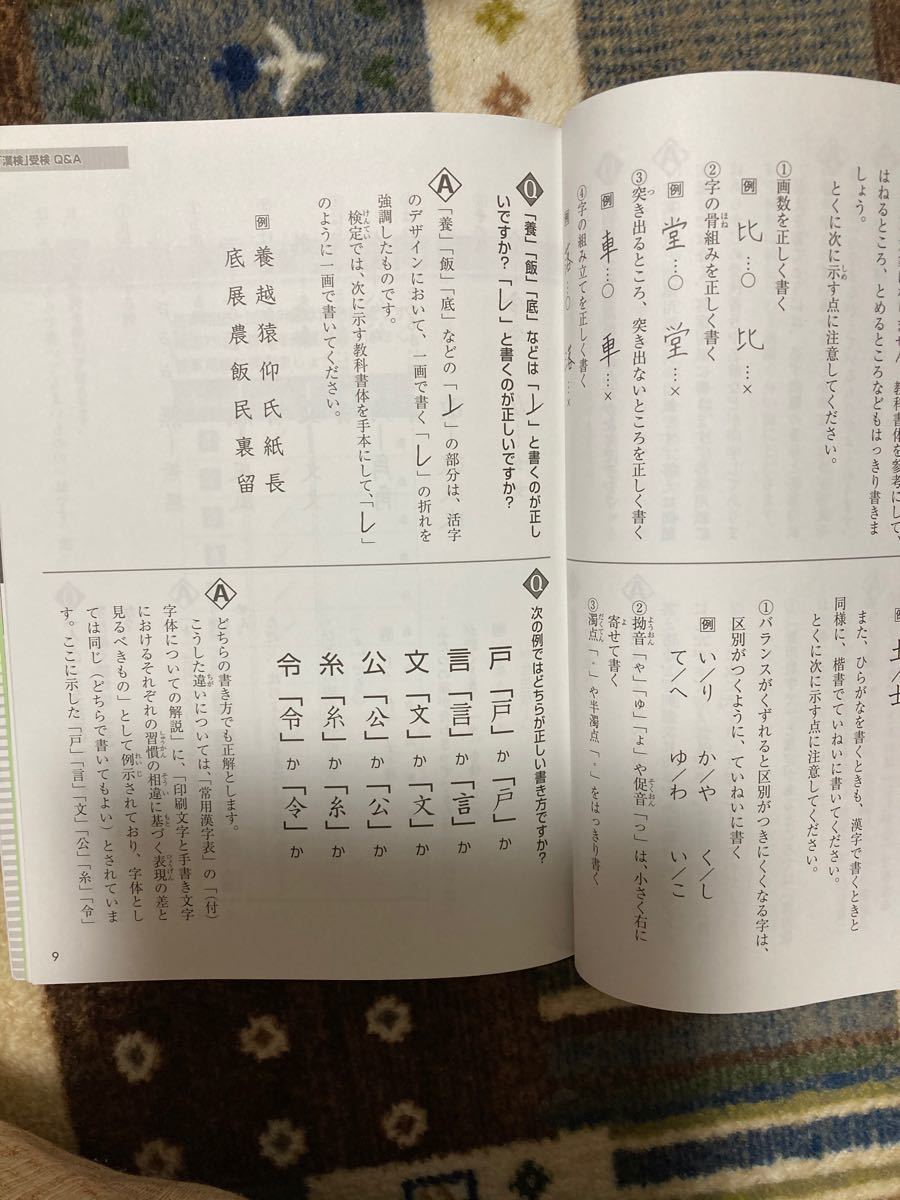 はねるところ、とめるところなどもはっきり書きま
しょう。
とくに次に示す点に注意してください。
①画数を正しく書く
例 比…○ 比…×
②字の骨組みを正しく書く
例 堂…○ 堂…×
③突き出るところ、突き出ないところを正しく書く
例 車…○ 車…×
④字の組み立てを正しく書く
また、ひらがなを書くときも、漢字で書くときと
同様に、楷書でていねいに書いてください。
とくに次に示す点に注意してください。
①バランスがくずれると区別がつきにくくなる字は、
区別がつくように、ていねいに書く
例 い/り か/や く/し
て/へ ゆ/わ い/こ
②拗音「ゃ」「ゅ」「ょ」や促音「っ」は、小さく右に
寄せて書く
③濁点「゛」や半濁点「゜」をはっきり書く
「漢検」受検 Q&A
Q 「養」「飯」「底」などは「レ」と書くのが正し
いですか？「レ」と書くのが正しいですか？
A 「養」「飯」「底」などの「レ」の部分は、活字
のデザインにおいて、一画で書く「レ」の折れを
強調したものです。
検定では、次に示す教科書体を手本にして、「レ」
のように一画で書いてください。
例 養 越 猿 仰 氏 紙 長
底 展 農 飯 民 裏 留
Q 次の例ではどちらが正しい書き方ですか？
戸「戸」か「戸」か
言「言」か「言」か
文「文」か「文」か
公「公」か「公」か
糸「糸」か「糸」か
令「令」か「令」か
A どちらの書き方でも正解とします。
こうした違いについては、「常用漢字表」の「（付）
字体についての解説」に、「印刷文字と手書き文字
におけるそれぞれの習慣の相違に基づく表現の差と
見るべきもの」として例示されており、字体とし
ては同じ（どちらで書いてもよい）とされていま
す。ここに示した「戸」「言」「文」「公」「糸」「令」
9